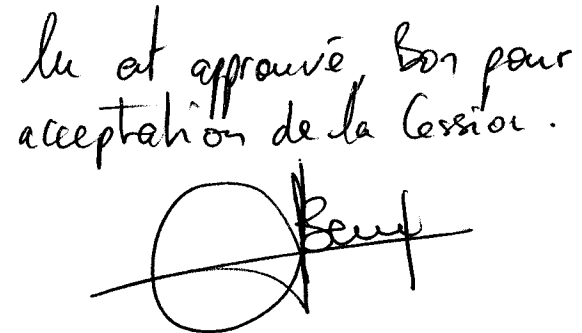 lu et approuvé, Bon pour
acceptation de la Cession.